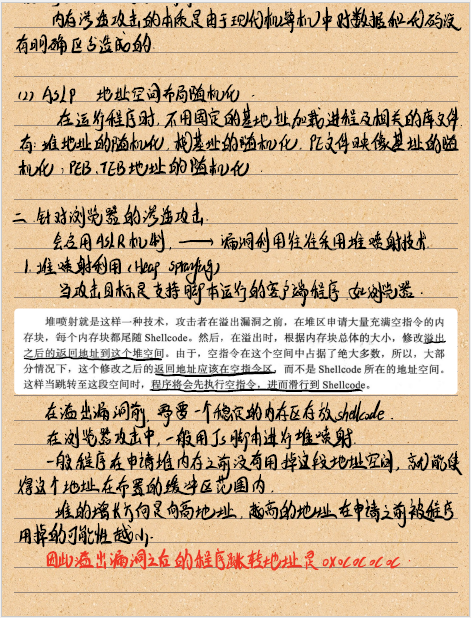 内存溢出攻击的本质是由于现代计算机中对数据和代码没
有明确区分造成的
(2) ASLP 地址空间布局随机化.
在运行程序时,不用固定的基地址加载进程及相关的库文件
有:堆地址的随机化,栈基址的随机化,PE文件映像基址的随
机化,PEB、TEB地址的随机化.
二 针对浏览器的渗透攻击.
会启用ASLR机制, ⟶ 漏洞利用往往采用堆喷射技术
1. 堆喷射利用 (Heap spraying)
当攻击目标是支持脚本运行的客户端程序 如浏览器.
堆喷射就是这样一种技术,攻击者在溢出漏洞之前,在堆区申请大量充满空指令的内
存块,每个内存块都尾随 Shellcode。然后,在溢出时,根据内存块总体的大小,修改溢出
之后的返回地址到这个堆空间。由于,空指令在这个空间中占据了绝大多数,所以,大部
分情况下,这个修改之后的返回地址应该在空指令区,而不是 Shellcode 所在的地址空间。
这样当跳转至这段空间时,程序将会先执行空指令,进而滑行到 Shellcode。
在溢出漏洞前,需要一个稳定的内存区存放shellcode.
在浏览器攻击中,一般用JS脚本进行堆喷射.
一般程序在申请堆内存之前没有用掉这段地址空间,就能使
得这个地址在布置的缓冲区范围内.
堆的增长方向是向高地址,越高的地址在申请之前被程序
用掉的可能性越小.
因此溢出漏洞之后的程序跳转地址是 0x0c0c0c0c